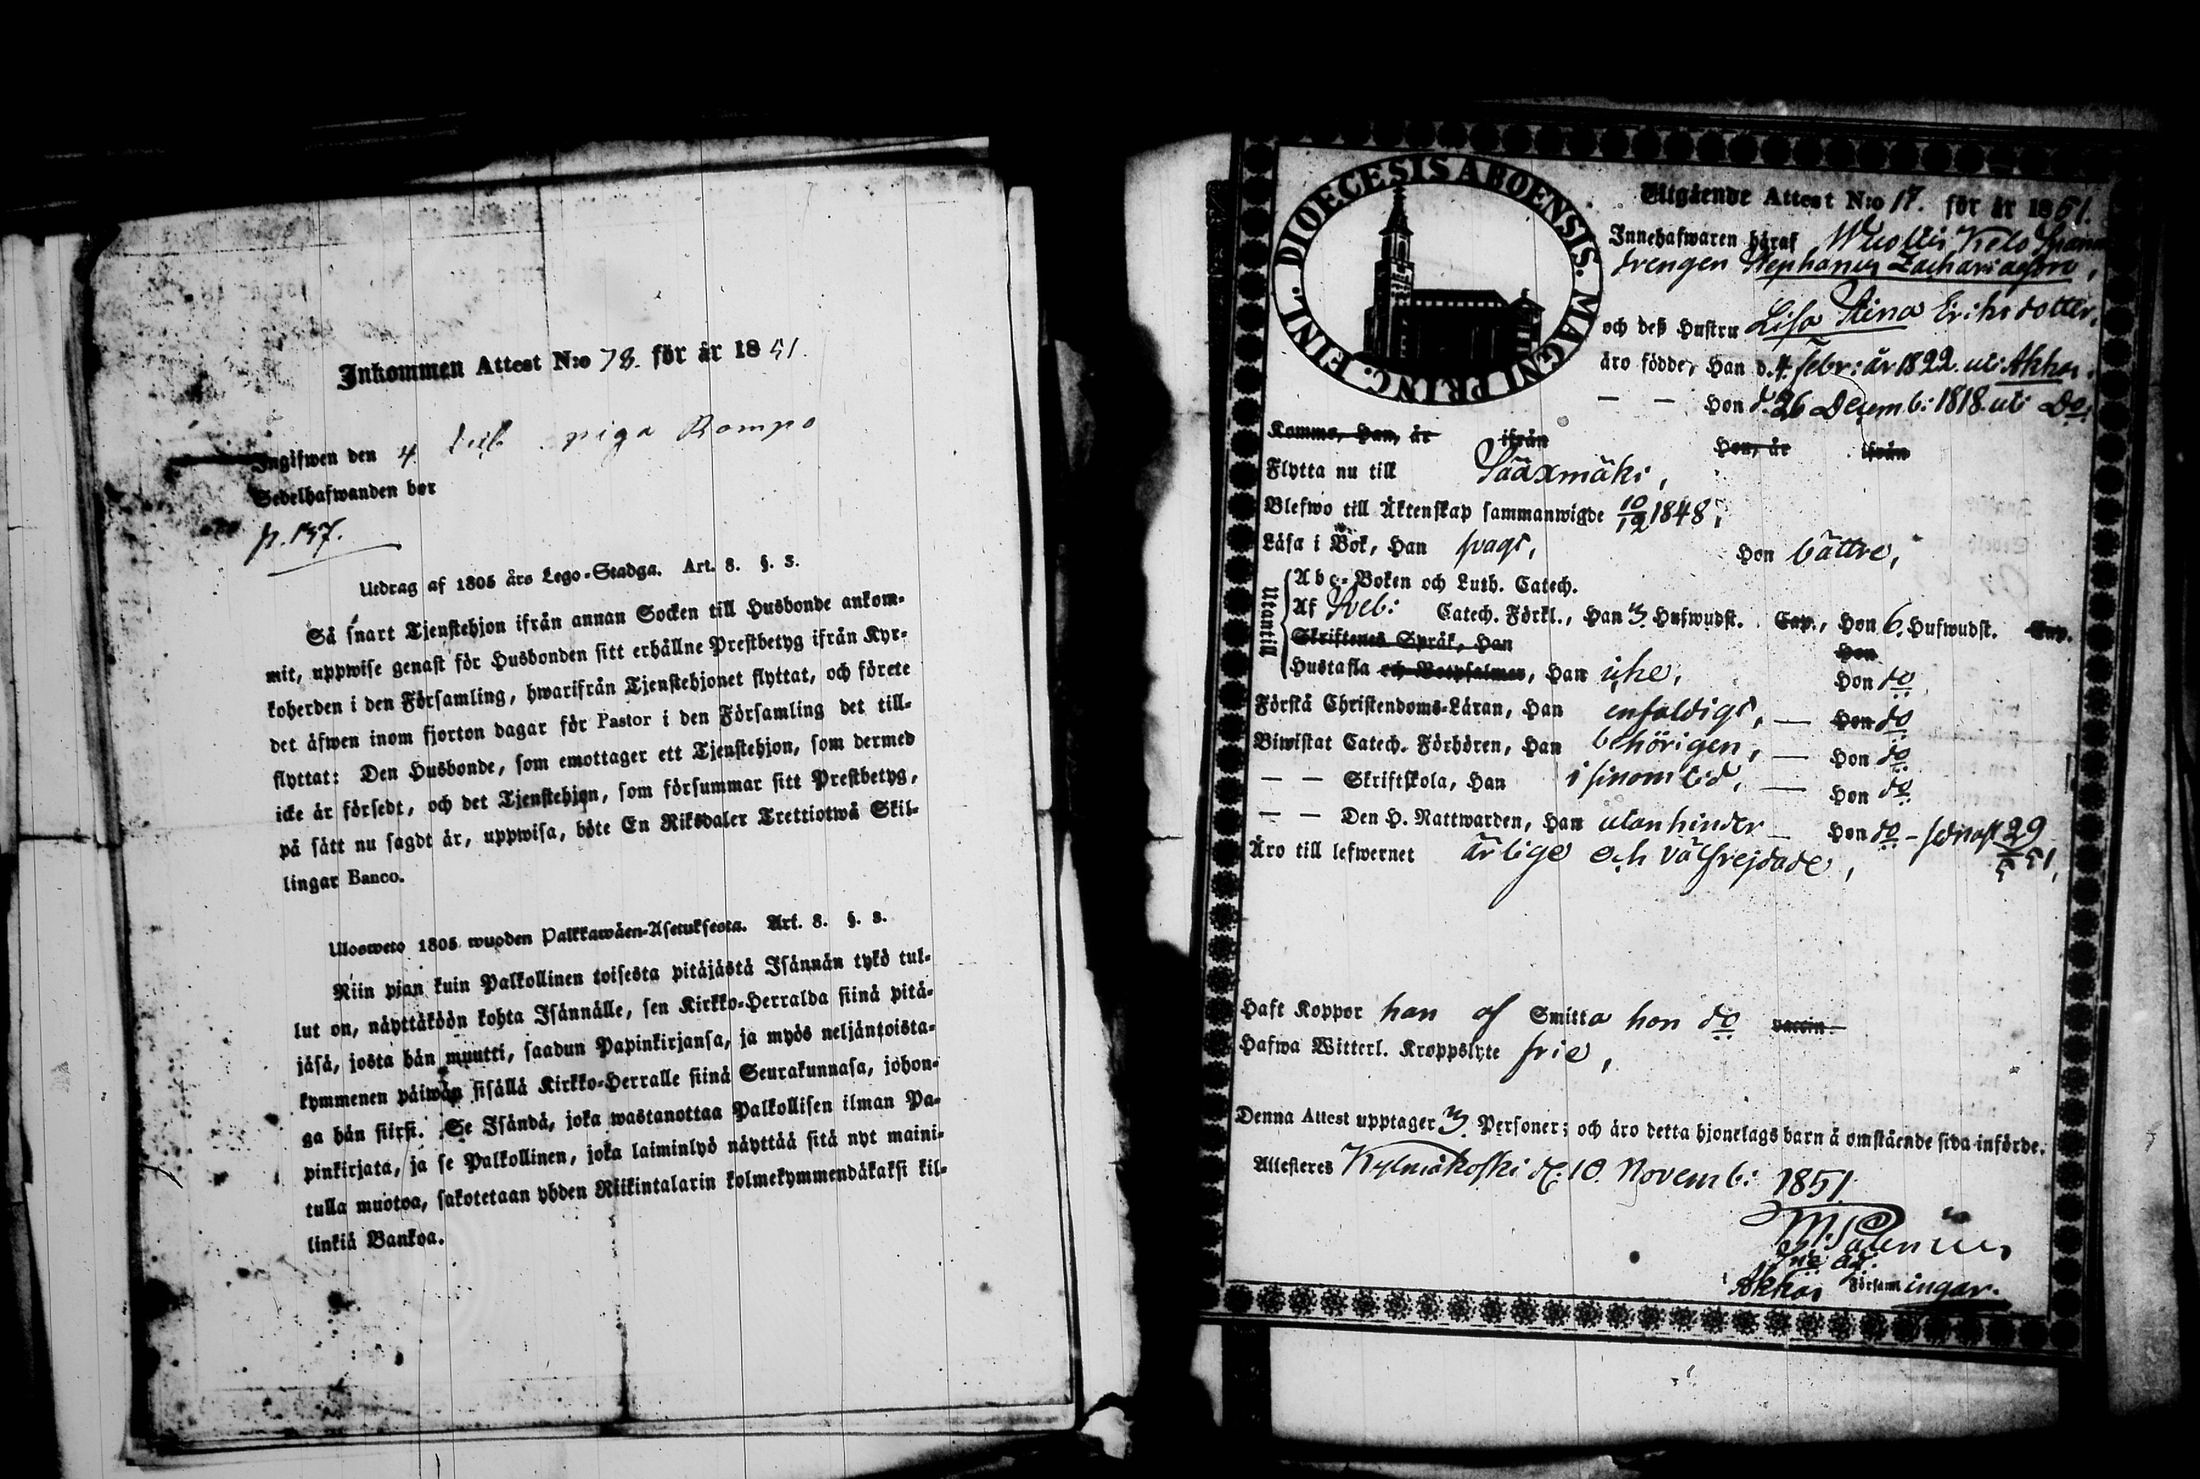 Inkommen Attest N:o 78. för år 1851.
Ingifwen den 4 piga Rompo
Sedelhafwanden bor
p. 137.
Utdrag af 1805 års Lego-Stadga. Art. 8. §. 3.
Så snart Tjenstehjon ifrån annan Socken till Husbonde ankom-
mit, uppwise genast för Husbonden sitt erhållne Prestbetyg ifrån Kyr-
koherden i den Församling, hwarifrån Tjenstehjonet flyttat, och förete
det äfwen inom fjorton dagar för Pastor i den Församling det till-
flyttat: Den Husbonde, som emottager ett Tjenstehjon, som dermed
icke är försedt, och det Tjenstehjon, som försummar sitt Prestbetyg,
på sätt nu sagdt är, uppwisa, böte En Riksdaler Trettiotwå Skil-
lingar Banco.
Ulosweto 1805 wuoden Palkkawäen-Asetuksesta. Art. 8. §. 3.
Niin pian kuin Palkollinen toisesta pitäjästä Isännän tykö tul-
lut on, näyttäköön kohta Isännälle, sen Kirkko-Herralda siinä pitä-
jäsä, josta hän muutti, saadun Papinkirjansa, ja myös neljäntoista-
kymmenen päiwän sisällä Kirkko-Herralle siinä Seurakunnasa, johon-
ga hän siirsi. Se Isändä, joka wastanottaa Palkollisen ilman Pa-
pinkirjata, ja se Palkollinen, joka laiminlyö näyttää sitä nyt maini-
tulla muotoa, sakotetaan yhden Riikintalarin kolmekymmendäkaksi kil-
linkiä Bankoa.
FINL. DIOECESIS ABOENSIS. MAGNI PRINC.
Utgående Attest N:o 17. för år 1851.
Innehafwaren häraf Wuolis Kelo
drengen Stephanus Zachariasson,
och deß Hustru Lisa Stina Eriksdotter,
äro födde, Han d. 4. febr: år 1822. uti Akkas.
— — Hon d. 26 Decemb: 1818. uti Do:
Komne, Han, år ifrån Hon, år ifrån
Flytta nu till Sääxmäki,
Blefwo till Äktenskap sammanwigde 10/12 1848,
Läsa i Bok, Han svagt, Hon bättre,
Utantill
Abc-Boken och Luth. Catech.
Af Sveb: Catech. Förkl., Han 3. Hufwudst. Cap., Hon 6. Hufwudst. Cap.
Skriftenes Språk, Han Hon
Hustafla och Botpsalmer, Han icke, Hon do
Förstå Christendoms-Läran, Han enfaldigt, — Hon do
Biwistat Catech. Förhören, Han behörigen, — Hon do
— — Skriftskola, Han i sinom tid, — Hon do
— — Den H. Nattwarden, Han utan hinder — Hon do – sednast 29/5 51,
Äro till lefwernet ärlige och välfrejdade,
Haft Koppor han af Smitta hon do vaccin.
Hafwa Witterl. Kroppslyte frie,
Denna Attest upptager 3. Personer; och äro detta hjonelags barn å omstående sida införde.
Attesteres Kylmäkoski d. 10. Novemb: 1851
i Akkas Församlingar.